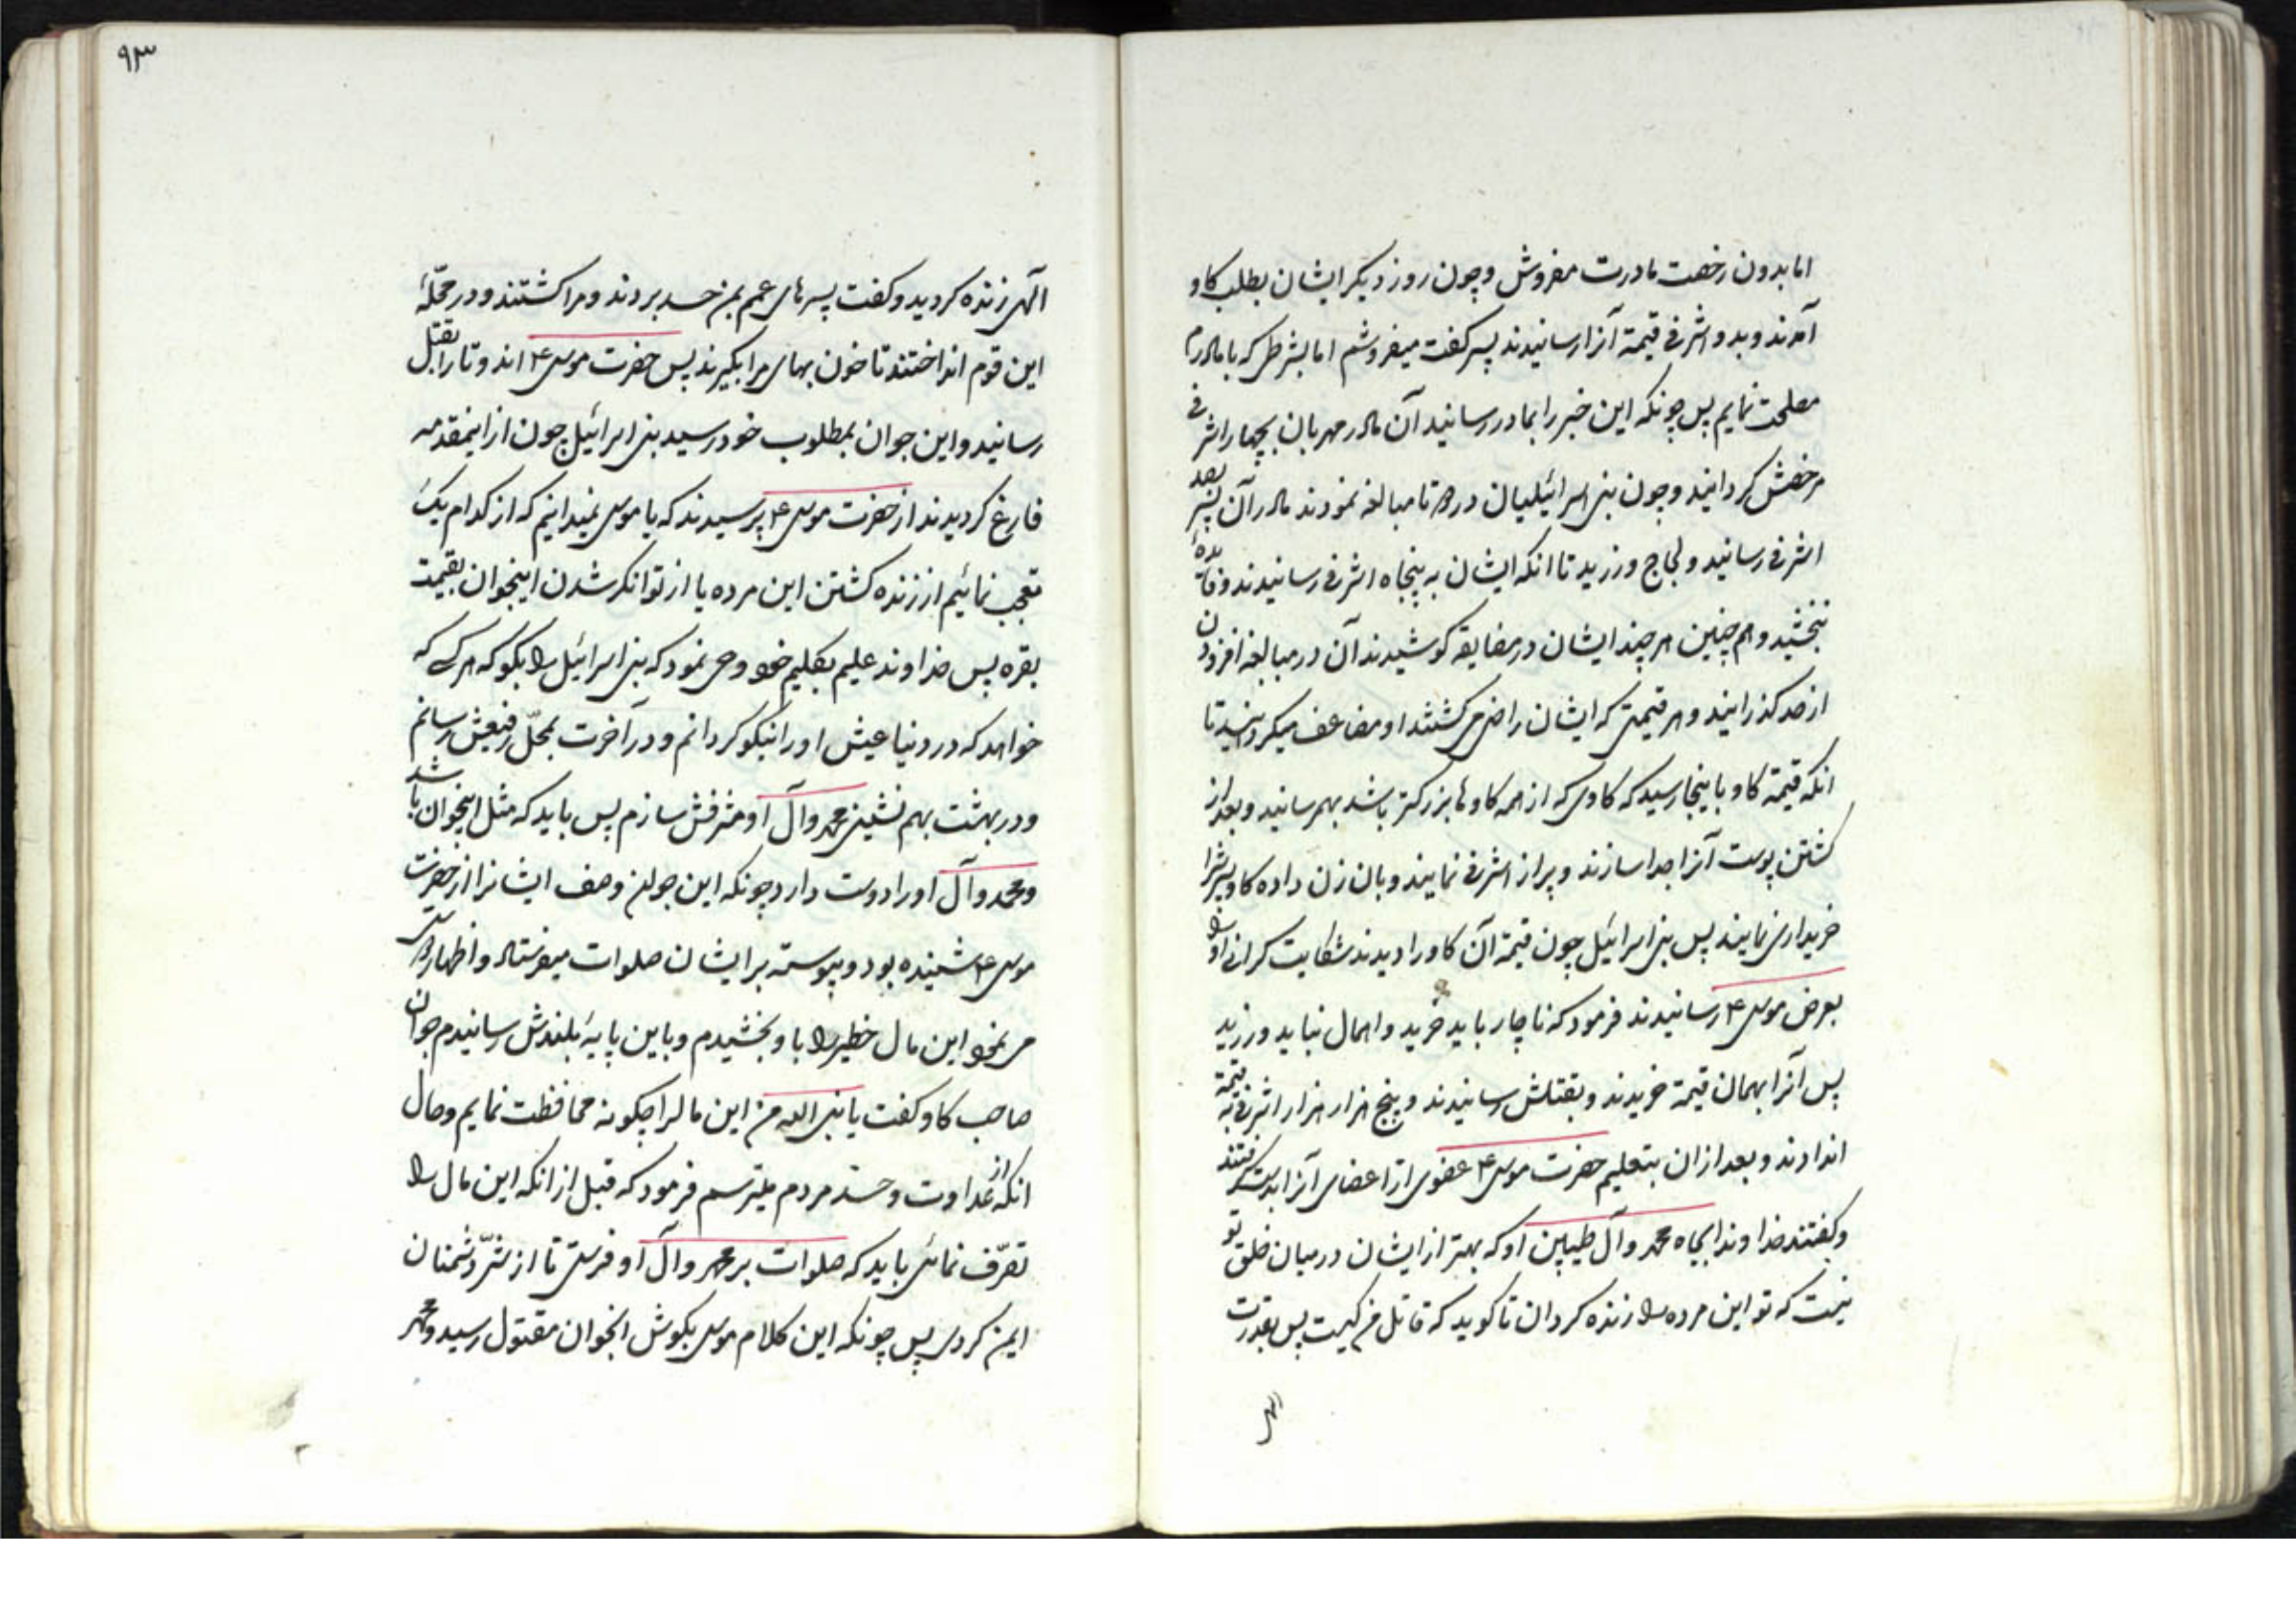 اما بدون رخصت مادرت مفروش و چون روز دیکر ایشان بطلب کاو
آمدند و بدو اشرفی قیمة آنرا رسانیدند پسر کفت میفروشم اما بشرطی که با مادرم
مصلحت نمایم پس چونکه این خبر را بمادر رسانید آن مادر مهربان بچهار اشرفی
مرخصش کردانید و چون بنی اسرائیلیان در دو تا مبالغه نمودند مادر آن پسر بصد
اشرفی رسانید و لجاج ورزید تا انکه ایشان به پنجاه اشرفی رسانیدند و فایدهٔ
نبخشید و هم چنین هر چند ایشان در مضایقه کوشیدند آن در مبالغه افزود تا
از صد کذرانید و هر قیمتی که ایشان راضی میکشتند او مضاعف میکردانید تا
انکه قیمة کاو باینجا رسید که کاوی که از همه کاوها بزرکتر باشد بهم رسانید و بعد از
کشتن پوست آنرا جدا سازند و پر از اشرفی نمایند و بان زن داده کاو پسرش را
خریداری نمایند پس بنی اسرائیل چون قیمة آن کاو را دیدند شکایت کرانی او را
بعرض موسی ع رسانیدند فرمود که ناچار باید خرید و اهمال نباید ورزید
پس آنرا بهمان قیمة خریدند و بقتلش رسانیدند و پنج هزار هزار اشرفی به قیمة
اندادند و بعد از ان بتعلیم حضرت موسی ع عضوی از اعضای آنرا بدست کرفتند
و کفتند خداوندا بجاه محمد و آل طیبین او که بهتر از ایشان در میان خلق تو
نیست که تو این مرده را زنده کردان تا کوید که قاتل من کیست پس بقدرت
الهی
۹۳
الهی زنده کردید و کفت پسرهای عمم بمن حسد بردند و مرا کشتند و در محلّهٔ
این قوم انداختند تا خون بهای مرا بکیرند پس حضرت موسی ع اندو تا را بقتل
رسانید و این جوان بمطلوب خود رسید بنی اسرائیل چون از اینمقدمه
فارغ کردیدند از حضرت موسی ع پرسیدند که یا موسی نمیدانیم که از کدام یک
تعجب نمائیم از زنده کشتن این مرده یا از توانکر شدن اینجوان بقیمت
بقره پس خداوند علیم بکلیم خود وحی نمود که بنی اسرائیل را بکو که هر کس که
خواهد که در دنیا عیش او را نیکو کردانم و در آخرت بمحلّ رفیعش رسانم
و در بهشت بهم نشینی محمد و آل او مشرفش سازم پس باید که مثل اینجوان باشد
و محمد و آل او را دوست دارد چونکه این جوان وصف ایشانرا از حضرت
موسی ع شنیده بود و پیوسته بر ایشان صلوات میفرستاد و اظهار دوستی
می نمود این مال خطیر را باو بخشیدم و باین پایهٔ بلندش رسانیدم جوان
صاحب کاو کفت یا نبی الله من این مالرا چکونه محافظت نمایم و حال
انکه از عداوت و حسد مردم میترسم فرمود که قبل از انکه این مال را
تصرّف نمائی باید که صلوات بر محمد و آل او فرستی تا از شرّ دشمنان
ایمن کردی پس چونکه این کلام موسی بکوش انجوان مقتول رسید و محمد